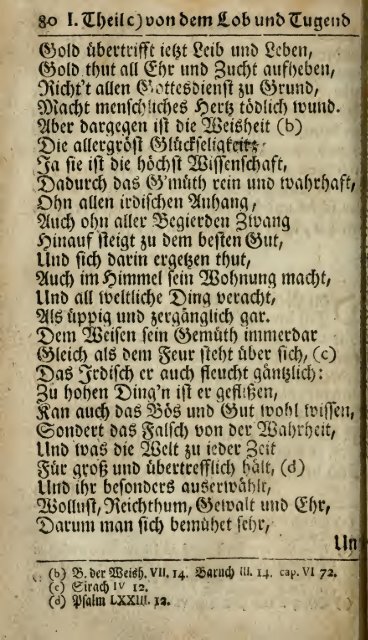 80 I. Theil c) von dem Lob und Tugend
Gold übertrifft ietzt Leib und Leben,
Gold thut all Ehr und Zucht aufheben,
Richt't allen Gottesdienst zu Grund,
Macht menschliches Hertz tödlich wund.
Aber dargegen ist die Weisheit (b)
Die allergröst Glückseligkeit;
Ja sie ist die höchst Wissenschaft,
Dadurch das G'müth rein und wahrhaft,
Ohn allen irdischen Anhang,
Auch ohn aller Begierden Zwang
Hinauf steigt zu dem besten Gut,
Und sich darin ergetzen thut,
Auch im Himmel sein Wohnung macht,
Und all weltliche Ding veracht,
Als üppig und zergänglich gar.
Dem Weisen sein Gemüth immerdar
Gleich als dem Feur steht über sich, (c)
Das Irdisch er auch fleucht gäntzlich:
Zu hohen Ding'n ist er geflißen,
Kan auch das Bös und Gut wohl wissen,
Sondert das Falsch von der Wahrheit,
Und was die Welt zu ieder Zeit
Für groß und übertrefflich hält, (d)
Und ihr besonders auserwählt,
Wollust, Reichthum, Gewalt und Ehr,
Darum man sich bemühet sehr,
Un
(b) B. der Weish. VII. 14. Baruch III. 14. cap. VI 72.
(c) Sirach IV 12.
(d) Psalm LXXIII. 12.